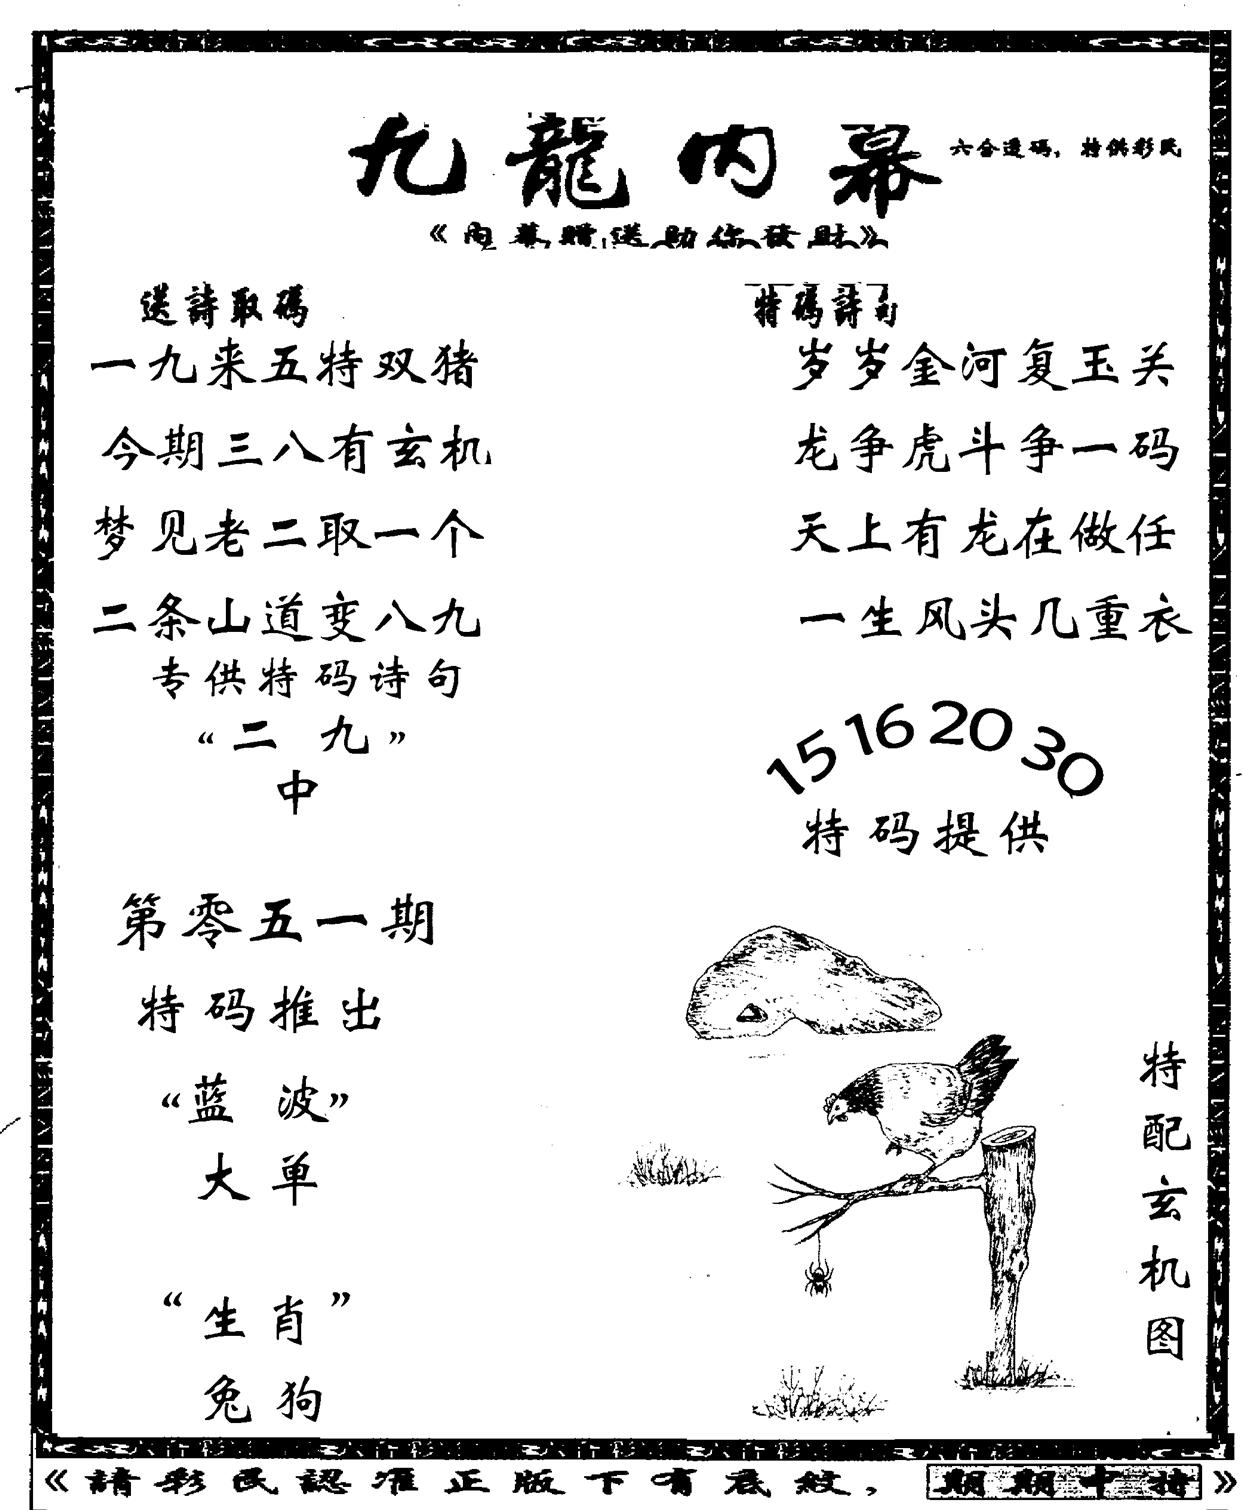 九龍内幕
六合透码，特供彩民
《内幕赠送助你發财》
送詩取碼
一九来五特双猪
今期三八有玄机
梦见老二取一个
二条山道变八九
专供特码诗句
“二九”
中
第零五一期
特码推出
“蓝波”
大单
“生肖”
兔狗
特碼詩句
岁岁金河复玉关
龙争虎斗争一码
天上有龙在做任
一生风头几重衣
15 16 20 30
特码提供
特配玄机图
《請彩民認准正版下有底紋，期期中特》